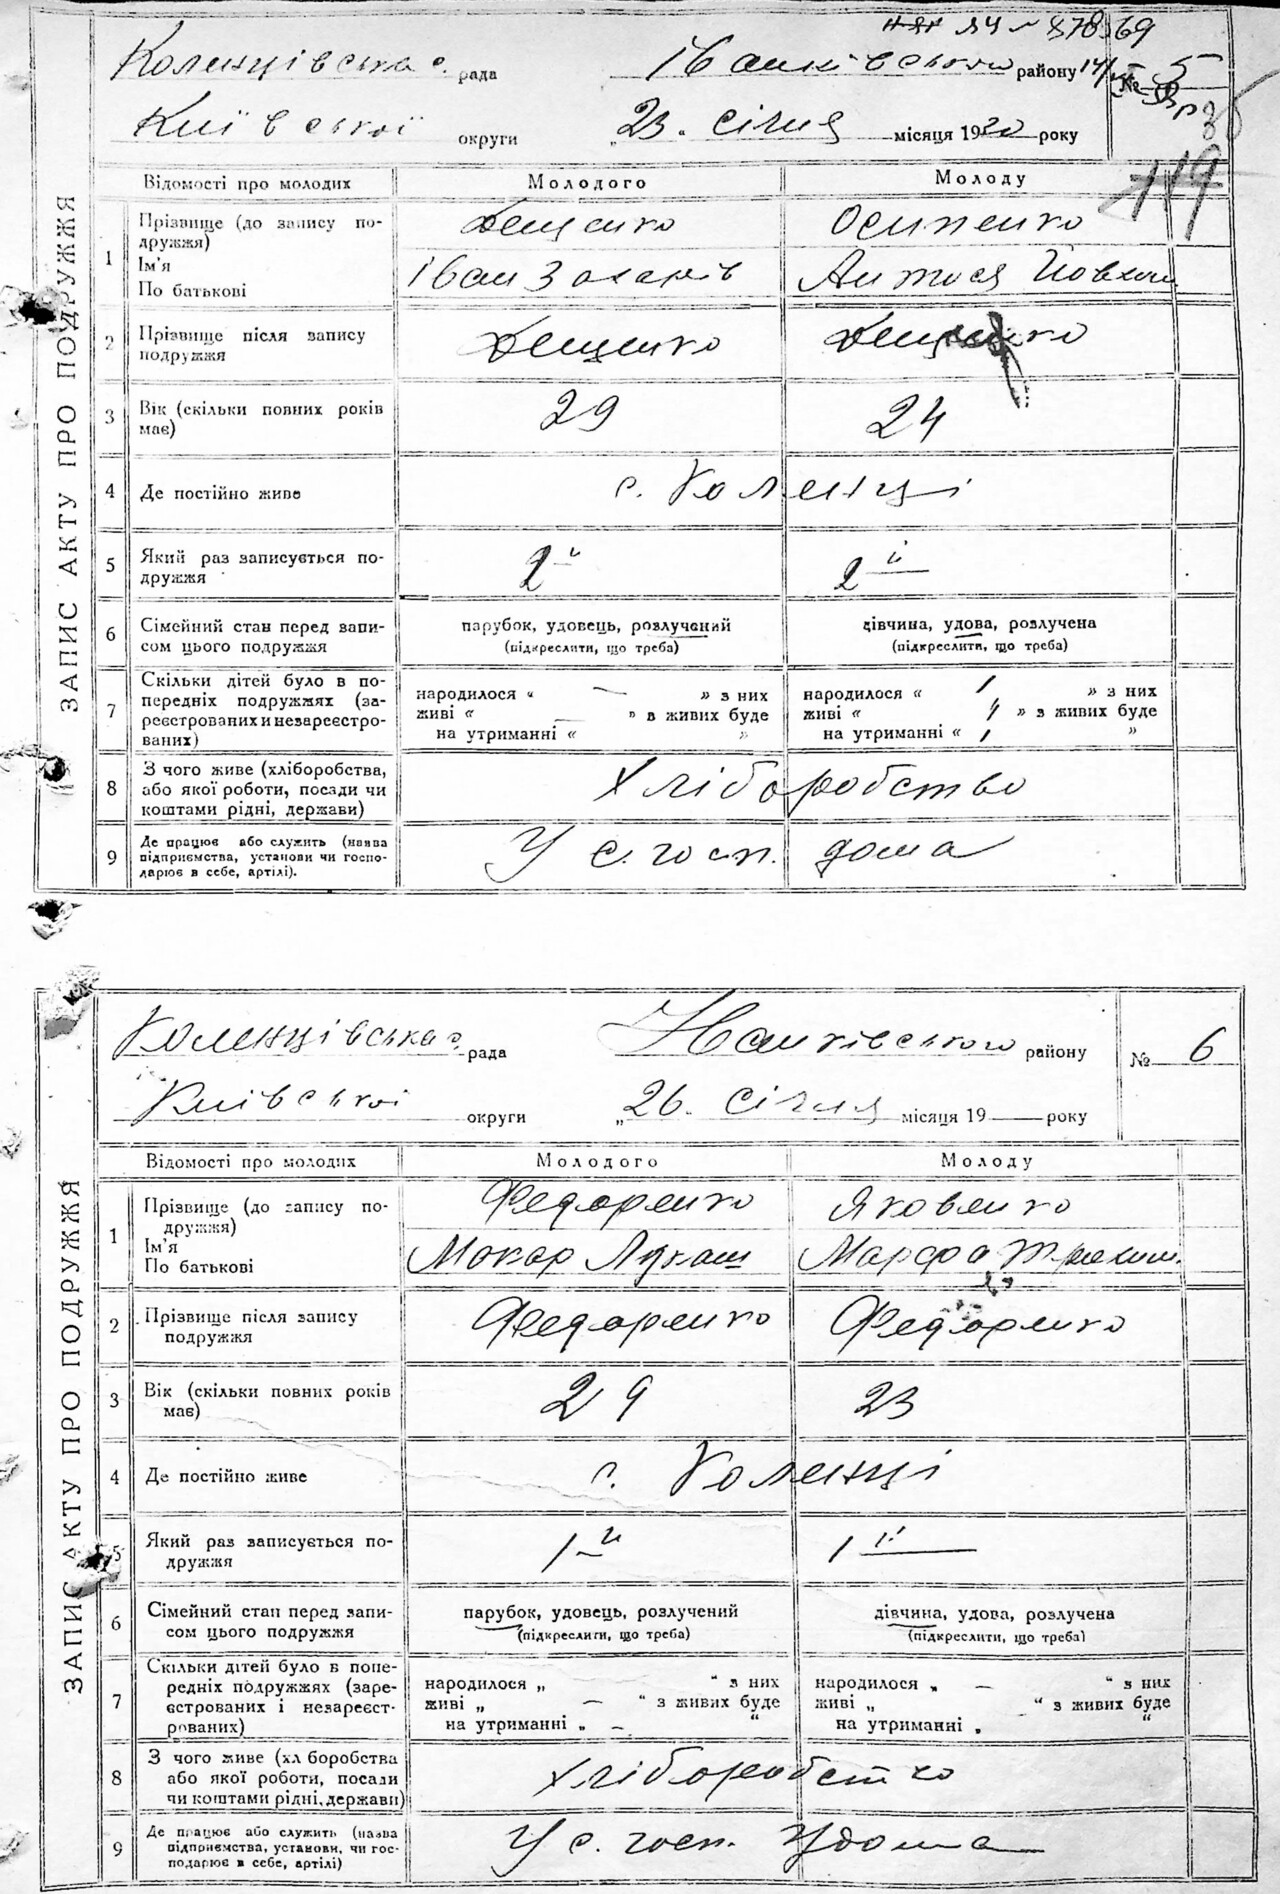 ЗАПИС АКТУ ПРО ПОДРУЖЖЯ
Коленцівська с. рада Іванківського району № 5
Київської округи „23. січня місяця 1930 року
119
Відомості про молодих Молодого Молоду
1 Прізвище (до запису по-
дружжя) Дещенко Осипенко
Ім'я
По батькові Іван Захарів Антося Йовхим.
2 Прізвище після запису
подружжя Дещенко Дещенко
3 Вік (скільки повних років
має) 29 24
4 Де постійно живе с. Коленці
5 Який раз записується по-
дружжя 2й 2й
6 Сімейний стан перед запи-
сом цього подружжя
парубок, удовець, розлучений дівчина, удова, розлучена
(підкреслити, що треба) (підкреслити, що треба)
7 Скільки дітей було в по-
передніх подружжях (за-
реєстрованих и незареєстро-
ваних)
народилося “ — ” з них народилося “ 1 ” з них
живі “ — ” в живих буде живі “ ” з живих буде
на утриманні “ ” на утриманні “ 1 ”
8 З чого живе (хліборобства,
або якої роботи, посади чи
коштами рідні, держави) Хліборобство
9 Де працює або служить (назва
підприємства, установи чи госпо-
дарює в себе, артілі).
У с. госп. дома
ЗАПИС АКТУ ПРО ПОДРУЖЖЯ
Коленцівська с. рада Іванківського району № 6
Київської округи „26. січня місяця 19 — року
Відомості про молодих Молодого Молоду
1 Прізвище (до запису по-
дружжя) Федоренко Яковенко
Ім'я
По батькові Макар Лукаш Марфа Трохим.
2 Прізвище після запису
подружжя Федоренко Федоренко
3 Вік (скільки повних років
має) 29 23
4 Де постійно живе с. Коленці
5 Який раз записується по-
дружжя 1й 1й
6 Сімейний стан перед запи-
сом цього подружжя
парубок, удовець, розлучений дівчина, удова, розлучена
(підкреслити, що треба) (підкреслити, що треба)
7 Скільки дітей було в попе-
редніх подружжях (заре-
єстрованих і незареєст-
рованих)
народилося „ “ з них народилося „ — “ з них
живі „ — “ з живих буде живі „ “ з живих буде
на утриманні „ — “ на утриманні „ “
8 З чого живе (хл боробства
або якої роботи, посади
чи коштами рідні, держави) хліборобство
9 Де працює або служить (назва
підприємства, установи, чи гос-
подарює в себе, артілі)
У с. госп. Удома